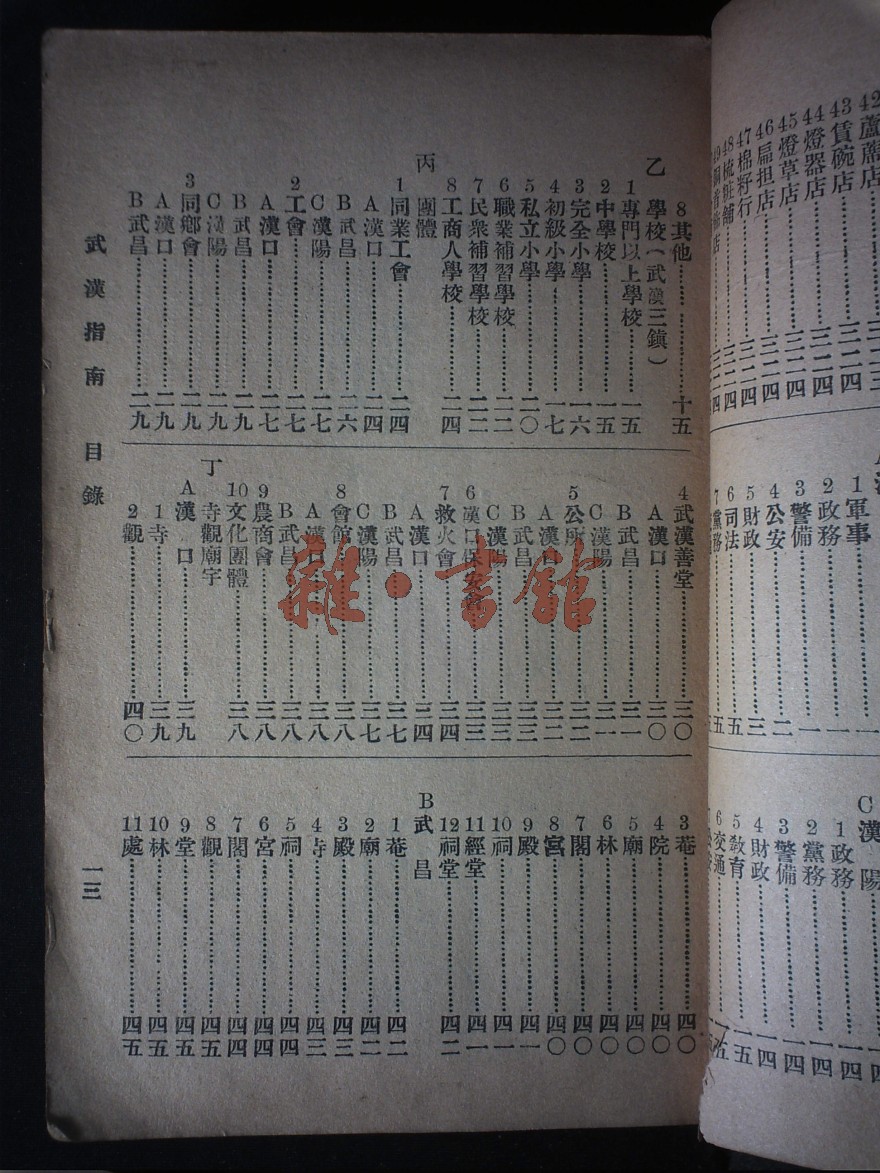 42蘆蓆店
43賃碗店
44燈器店
45燈草店
46扁担店
47棉籽行
48梳粧舖
1軍事
2政務
3警備
4公安
5財政
6司法
7黨務
C漢陽
1政務
2黨務
3警備
4財政
5教育
6交通
8其他……十五
乙 學校(武漢三鎮)
1專門以上學校……一五
2中學校……一五
3完全小學……一六
4初級小學……一七
5私立小學……二〇
6職業補習學校……二二
7民衆補習學校……二二
8工商人學校……二四
丙 團體
1同業工會……二四
A漢口……二四
B武昌……二六
C漢陽……二七
2工會……二七
A漢口……二七
B武昌……二九
C漢陽……二九
3同鄉會……二九
A漢口……二九
B武昌……二九
4武漢善堂……三〇
A漢口……三〇
B武昌……三一
C漢陽……三一
5公所……三二
A漢口……三二
B武昌……三三
C漢陽……三三
6漢口保安會……三三
7救火會……三四
A漢口……三四
B武昌……三七
C漢陽……三七
8會館……三八
A漢口……三八
B武昌……三八
9農商會……三八
10文化團體……三八
丁 寺觀廟宇
A漢口……三九
1寺……三九
2觀……四〇
3菴……四〇
4院……四〇
5廟……四〇
6林……四〇
7閣……四〇
8宮……四〇
9殿……四一
10祠……四一
11經堂……四一
12祠堂……四二
B武昌
1菴……四二
2廟……四二
3殿……四三
4寺……四三
5祠……四四
6宮……四四
7閣……四四
8觀……四五
9堂……四五
10林……四五
11處……四五
武漢指南 目錄
一三
雜·書館